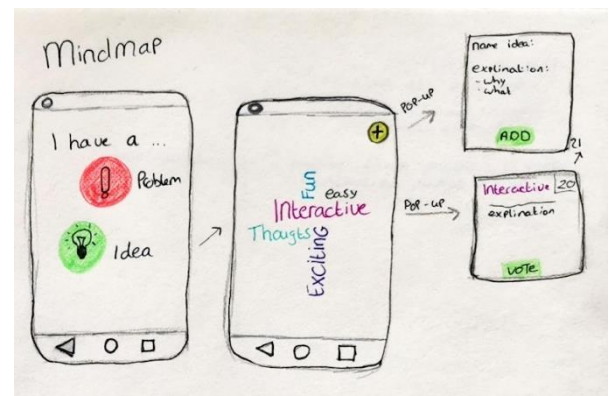 Mindmap
I have a ...
Problem
Idea
Fun
easy
Interactive
Thougts
Exciting
POP-UP
name idea:
explination:
- why
- what
ADD
POP-UP
Interactive 20
explination
VOTE
21